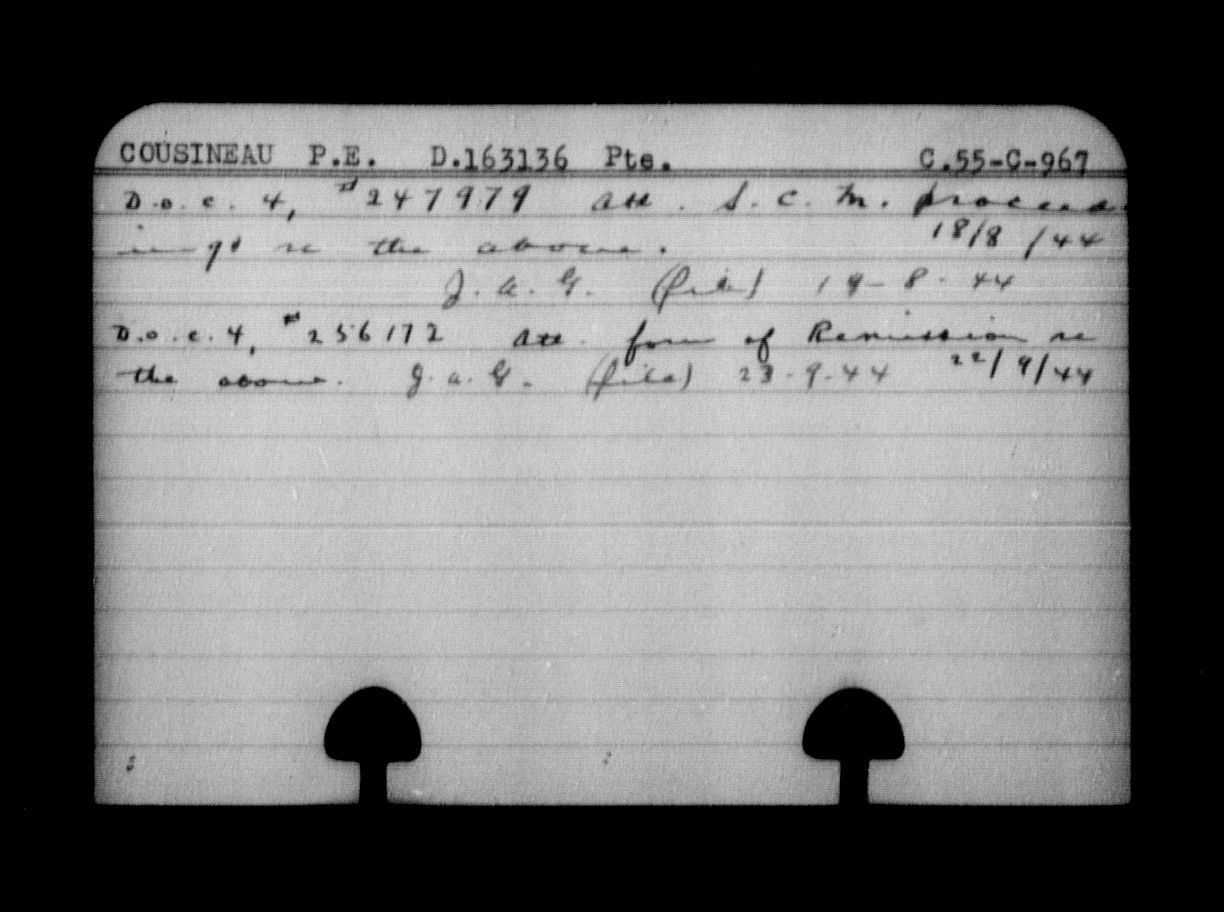 COUSINEAU P.E. D.163136 Pte. C.55-C-967
D.o.c. 4, #247979 att. S.C.M. proceed-
ings re the above. 18/8/44
J.A.G. (file) 19-8-44
D.o.c. 4, #256172 att. form of Remission re
the above. J.a.G. (file) 23-9-44 22/9/44